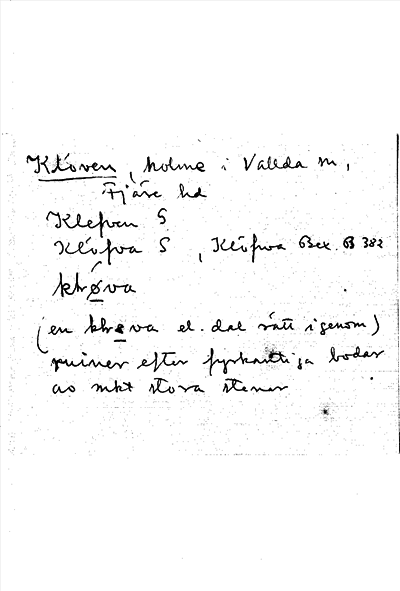 Klöven, holme i Vallda sn,
Fjäre hd
Klefven S
Klöfva S, Klöfwa Bex. B 382
khrøva
(en khrøva el. dal rätt igenom)
ruiner efter fyrkantiga bodar
av mkt stora stenar